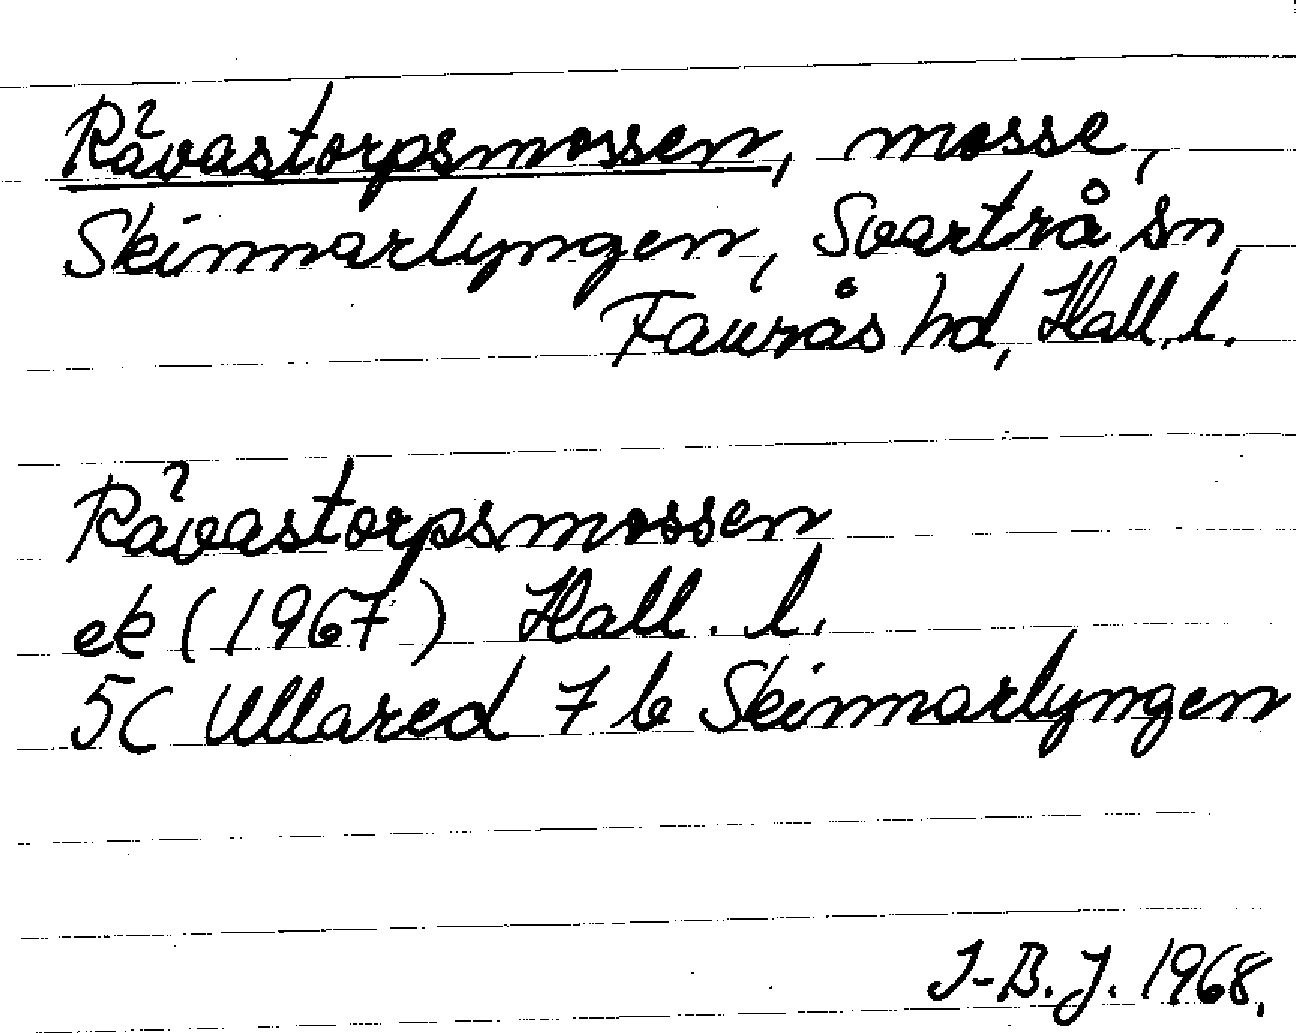 Råvastorpsmossen, mosse,
Skinnarlyngen, Svartrå sn,
Faurås hd, Hall. l.
Råvastorpsmossen
ek (1967) Hall. l.
5C Ullared 7 b Skinnarlyngen
I-B. J. 1968.